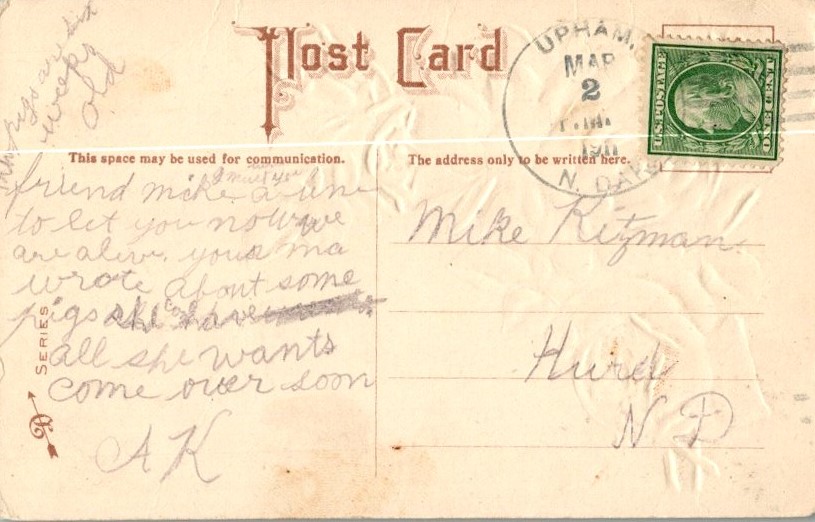 Post Card
UPHAM,
MAR
2
1911
N. DAK
U.S. POSTAGE
ONE CENT
This space may be used for communication.
The address only to be written here.
pigs are six
weeks
old
friend mike a line
to let you now we
are alive. your ma
wrote about some
pigs she can have
all she wants
come over soon
A K
Mike Kitzman
Hurd
N D
SERIES